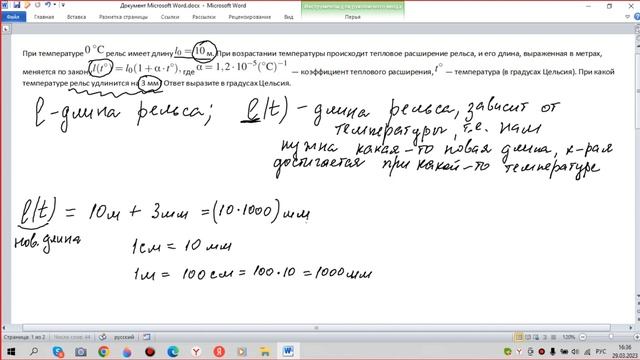 Документ Microsoft Word.docx - Microsoft Word
Инструменты рукописного ввода
Файл Главная Вставка Разметка страницы Ссылки Рассылки Рецензирование Вид Надстройки Перья
При температуре 0 °C рельс имеет длину l₀ = 10 м. При возрастании температуры происходит тепловое расширение рельса, и его длина, выраженная в метрах,
меняется по закону l(t°) = l₀(1 + α · t°), где α = 1,2 · 10⁻⁵(°C)⁻¹ — коэффициент теплового расширения, t° — температура (в градусах Цельсия). При какой
температуре рельс удлинится на 3 мм? Ответ выразите в градусах Цельсия.
l - длина рельса; l(t) - длина рельса, зависит от
температуры, т.е. нам
нужна какая-то новая длина, к-рая
достигается при какой-то температуре
l(t) = 10м + 3мм = (10·1000) мм
нов. длина
1см = 10 мм
1м = 100 см = 100·10 = 1000 мм
Страница: 1 из 2 Число слов: 44 русский 120%
РУС 16:36
29.03.2023